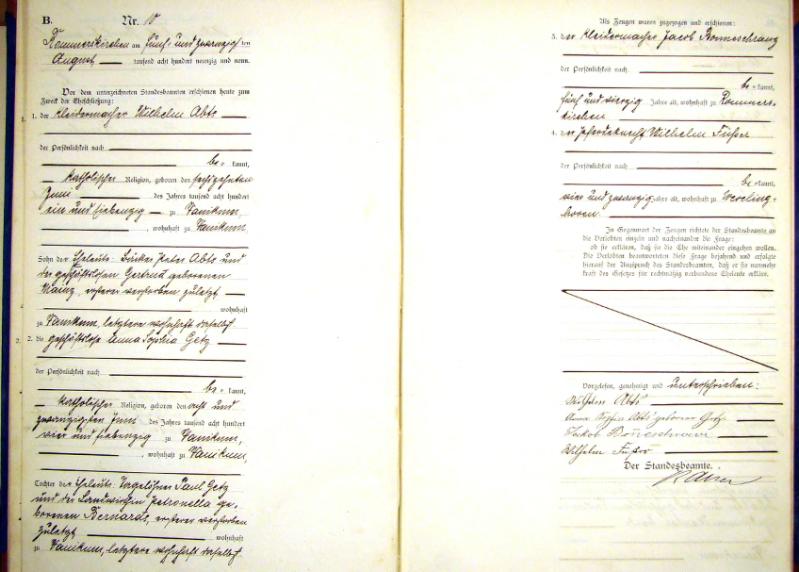 B.
Nr. 10
Rommerskirchen am fünf und zwanzigsten
August tausend acht hundert neunzig und neun.
Vor dem unterzeichneten Standesbeamten erschienen heute zum
Zweck der Eheschließung:
1. der Kleidermacher Wilhelm Abts
der Persönlichkeit nach
be= kannt,
katholischer Religion, geboren den sechszehnten
Juni des Jahres tausend acht hundert
ein und siebenzig zu Vanikum,
, wohnhaft zu Vanikum,
Sohn der Eheleute: Bäcker Peter Abts und
der geschäftslosen Gertrud geborenen
Mainz, ersterer verstorben zuletzt
wohnhaft
zu Vanikum, letztere wohnhaft daselbst
2. die geschäftslose Anna Sophia Getz
der Persönlichkeit nach
be= kannt,
katholischer Religion, geboren den acht und
zwanzigsten Juni des Jahres tausend acht hundert
vier und siebenzig zu Vanikum,
, wohnhaft zu Vanikum,
Tochter der Eheleute Tagelöhner Paul Getz
und der Landwirthin Petronella ge-
borenen Bernards, ersterer verstorben
zuletzt wohnhaft
zu Vanikum, letztere wohnhaft daselbst
Als Zeugen waren zugezogen und erschienen:
3. der Kleidermacher Jacob
der Persönlichkeit nach
be= kannt,
fünf und vierzig Jahre alt, wohnhaft zu Rommers-
kirchen
4. der Pferdeknecht Wilhelm Füsser
der Persönlichkeit nach
be= kannt,
vier und zwanzig Jahre alt, wohnhaft zu Evesing-
hoven.
In Gegenwart der Zeugen richtete der Standesbeamte an
die Verlobten einzeln und nacheinander die Frage:
ob sie erklären, daß sie die Ehe miteinander eingehen wollen.
Die Verlobten beantworteten diese Frage bejahend und erfolgte
hierauf der Ausspruch des Standesbeamten, daß er sie nunmehr
kraft des Gesetzes für rechtmäßig verbundene Eheleute erkläre.
Vorgelesen, genehmigt und unterschrieben:
Wilhelm Abts
Anna Sophia Abts geborene Getz
Jakob
Wilhelm Füsser
Der Standesbeamte.